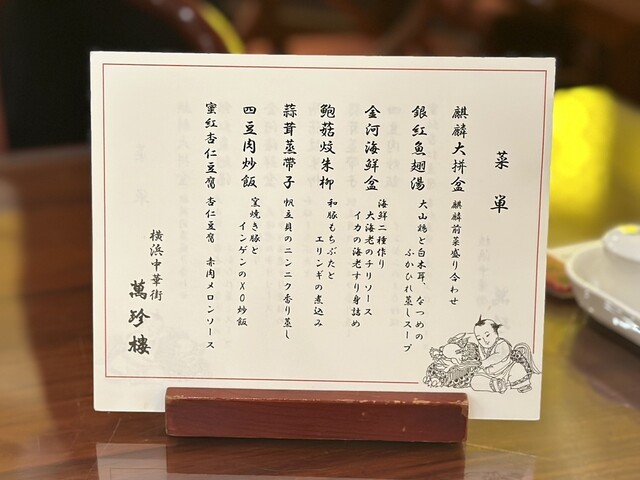 菜単
麒麟大拼盆 麒麟前菜盛り合わせ
銀紅魚翅湯 大山鶏と白木耳、なつめの
ふかひれ蒸しスープ
金河海鮮盆 海鮮二種作り
大海老のチリソース
イカの海老すり身詰め
鮑菇炆朱柳 和豚もちぶたと
エリンギの煮込み
蒜茸蒸帶子 帆立貝のニンニク香り蒸し
四豆肉炒飯 窯焼き豚と
インゲンのXO炒飯
蜜紅杏仁豆腐 杏仁豆腐 赤肉メロンソース
横浜中華街
萬珍樓